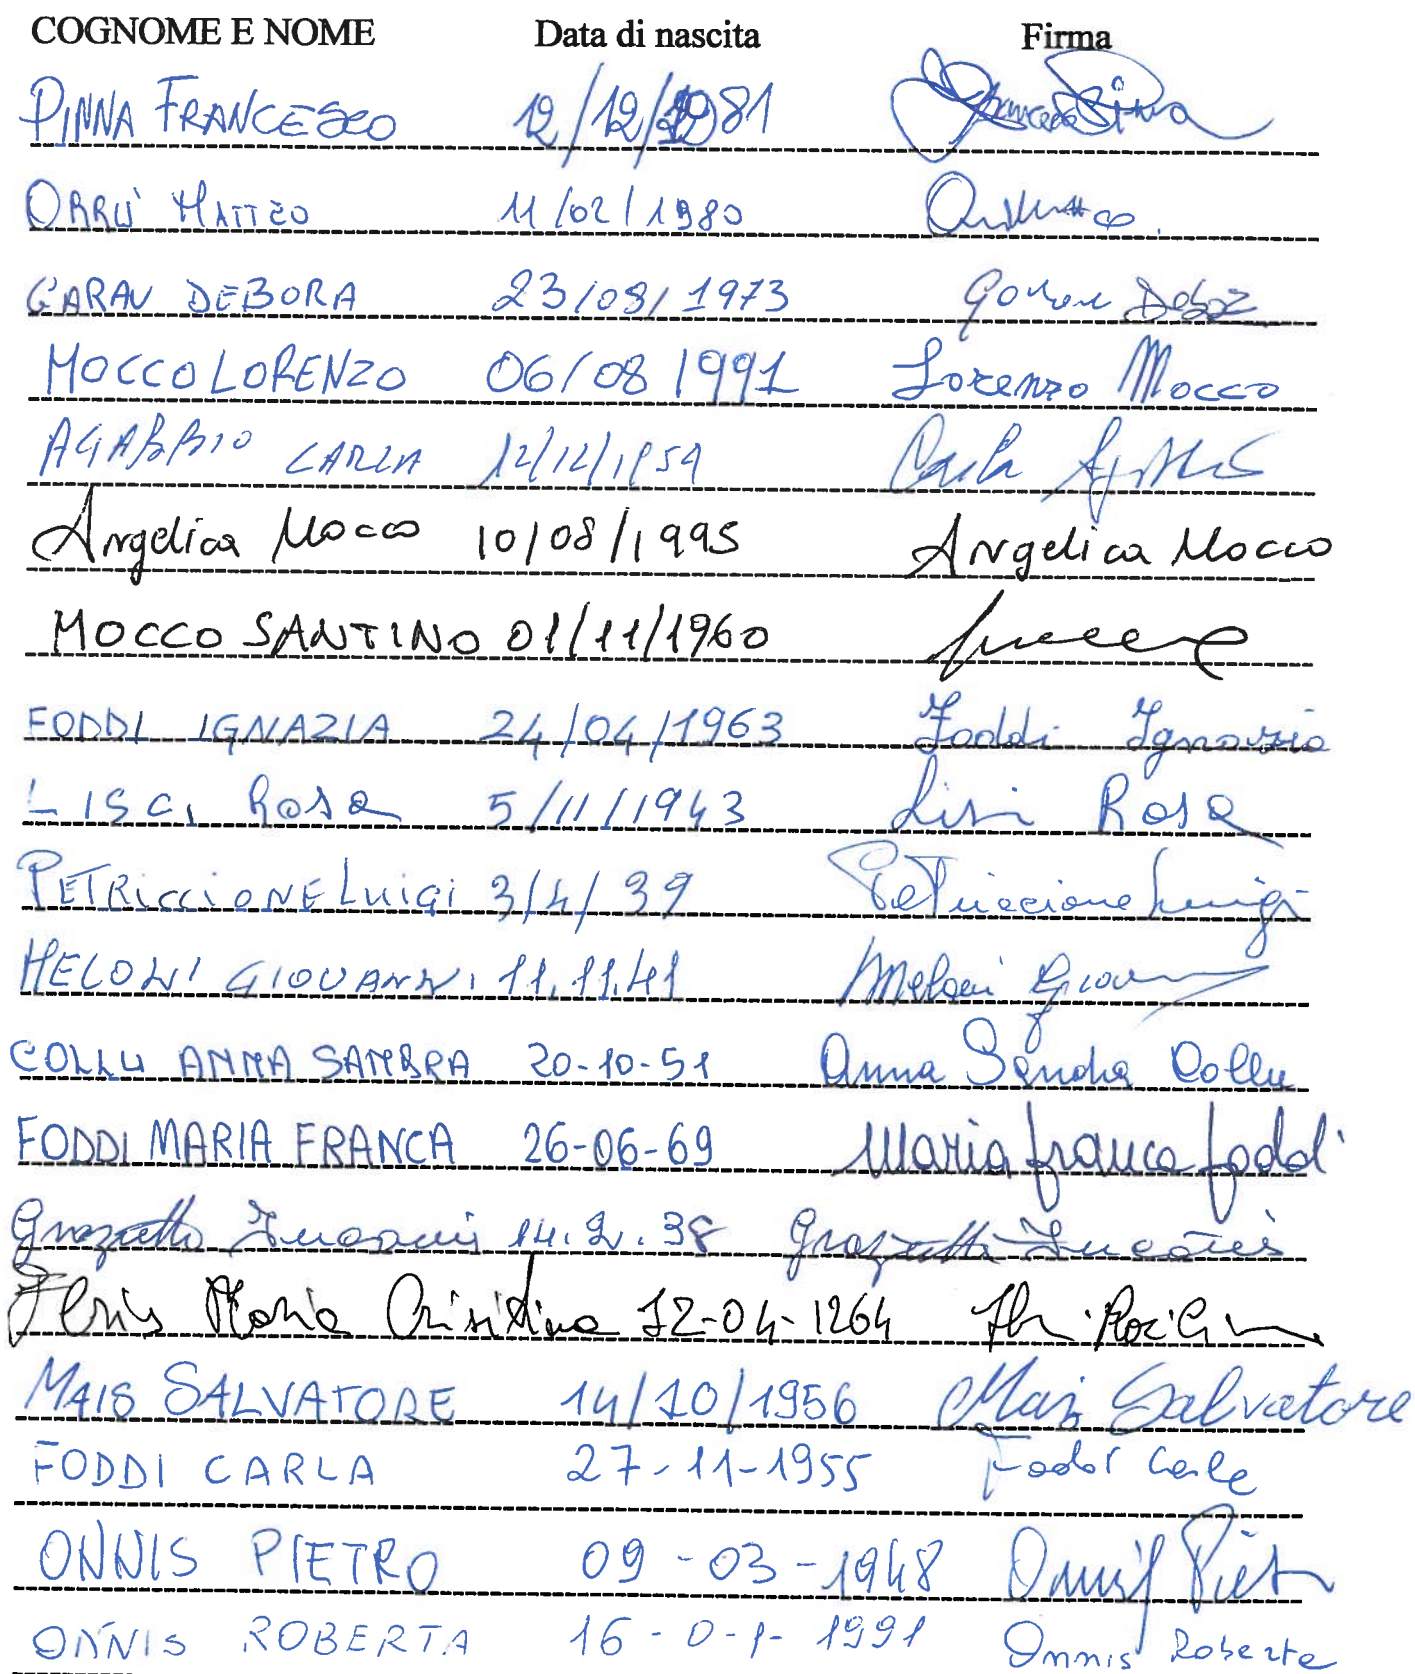 COGNOME E NOME Data di nascita Firma
PINNA FRANCESCO 12/12/1981 Francesco Pinna
ORRÙ MATTEO 11/02/1980
GARAU DEBORA 23/08/1973 Garau Debora
MOCCO LORENZO 06/08/1991 Lorenzo Mocco
AGABBIO CARLA 12/12/1959 Carla Agabbio
Angelica Mocco 10/08/1995 Angelica Mocco
MOCCO SANTINO 01/11/1960
FODDI IGNAZIA 24/04/1963 Foddi Ignazia
LISCI ROSA 5/11/1943 Lisci Rosa
PETRICCIONE LUIGI 3/4/39 Petriccione Luigi
MELONI GIOVANNI 11.11.41 Meloni Giovanni
COLLU ANNA SANDRA 20-10-51 Anna Sandra Collu
FODDI MARIA FRANCA 26-06-69 Maria Franca Foddi
14.2.38
Floris Maria Crisitina 12-04-1964
MAIS SALVATORE 14/10/1956 Mais Salvatore
FODDI CARLA 27-11-1955 Foddi Carla
ONNIS PIETRO 09-03-1948 Onnis Pietro
ONNIS ROBERTA 16-0-1-1991 Onnis Roberta